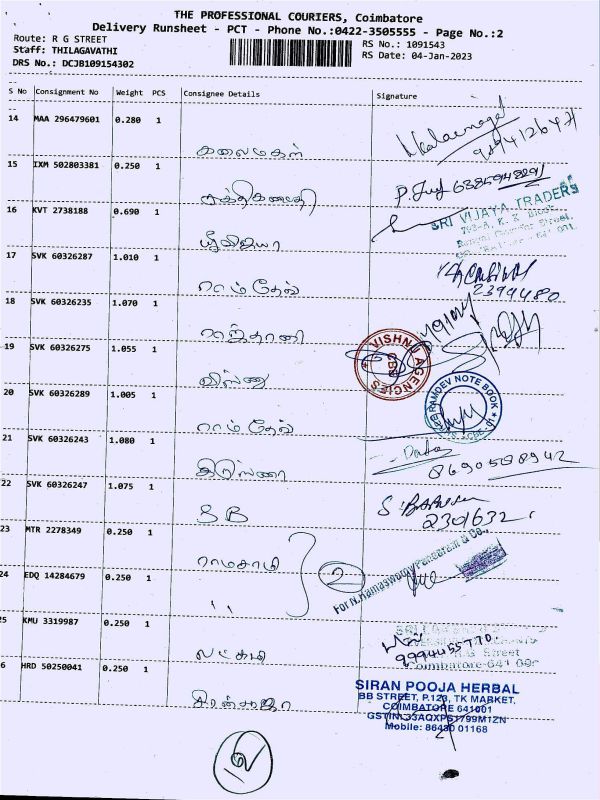 THE PROFESSIONAL COURIERS, Coimbatore
Delivery Runsheet - PCT - Phone No.:0422-3505555 - Page No.:2
Route: R G STREET
RS No.: 1091543
Staff: THILAGAVATHI
RS Date: 04-Jan-2023
DRS No.: DCJB109154302
S No Consignment No Weight PCS Consignee Details Signature
14 MAA 296479601 0.280 1
கலைமகள்
15 IXM 502803381 0.250 1
சக்திகணபதி
P. 6385948291
16 KVT 2738188 0.690 1
ஸ்ரீவிஜயா
SRI VIJAYA TRADERS
17 SVK 60326287 1.010 1
ராம்தேவ்
2394480
18 SVK 60326235 1.070 1
19 SVK 60326275 1.055 1
விஸ்ணு
VISHNU AGENCIES
CBE
20 SVK 60326289 1.005 1
ராம்தேவ்
RAMDEV NOTE BOOK
21 SVK 60326243 1.080 1
கிருஸ்ணா
8690588942
22 SVK 60326247 1.075 1
SB
2301632
23 MTR 2278349 0.250 1
ராமசாமி
2
For N.Ramaswamy Pansaram & Co.,
24 EDQ 14284679 0.250 1
,,
25 KMU 3319987 0.250 1
லட்சுமி
9994455770
Coimbatore-641 001
26 HRD 50250041 0.250 1
சிரன்பூஜா
SIRAN POOJA HERBAL
BB STREET, P.123, TK MARKET,
COIMBATORE 641001
GSTIN: 33AQXPS1799M1ZN
Mobile: 86430 01168